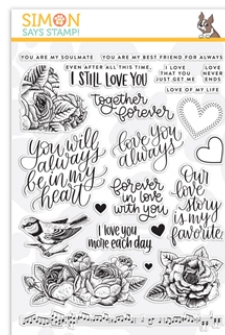 SIMON
SAYS STAMP!
YOU ARE MY SOULMATE
YOU ARE MY BEST FRIEND FOR ALWAYS
EVEN AFTER ALL THIS TIME,
I STILL LOVE YOU
I LOVE
THAT YOU
JUST GET ME
LOVE
NEVER
ENDS
LOVE OF MY LIFE
together
forever
You will
always
be in my
heart
love you
always
forever
in love
with you
Our
love
story
is my
favorite
I love you
more each day.